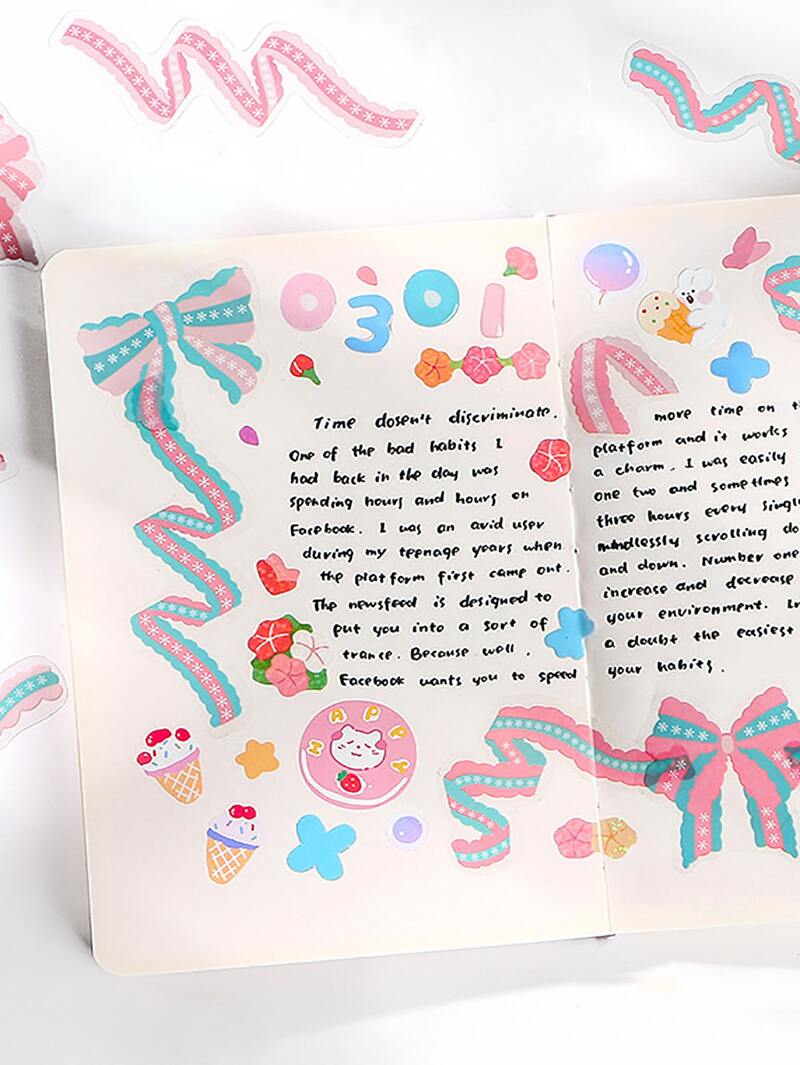 0301
Time dosen't discriminate.
One of the bad habits I
had back in the day was
spending hours and hours on
Facebook. I was an avid user
during my teenage years when
the platform first came out.
The newsfeed is designed to
put you into a sort of
trance. Because well,
Facebook wants you to speed
HAPPY
more time on
platform and it works
a charm. I was easily
one two and sometimes
three hours every
mindlessly scrolling
and down. Number one
increase and decrease
your environment.
a doubt the easiest
your habits.